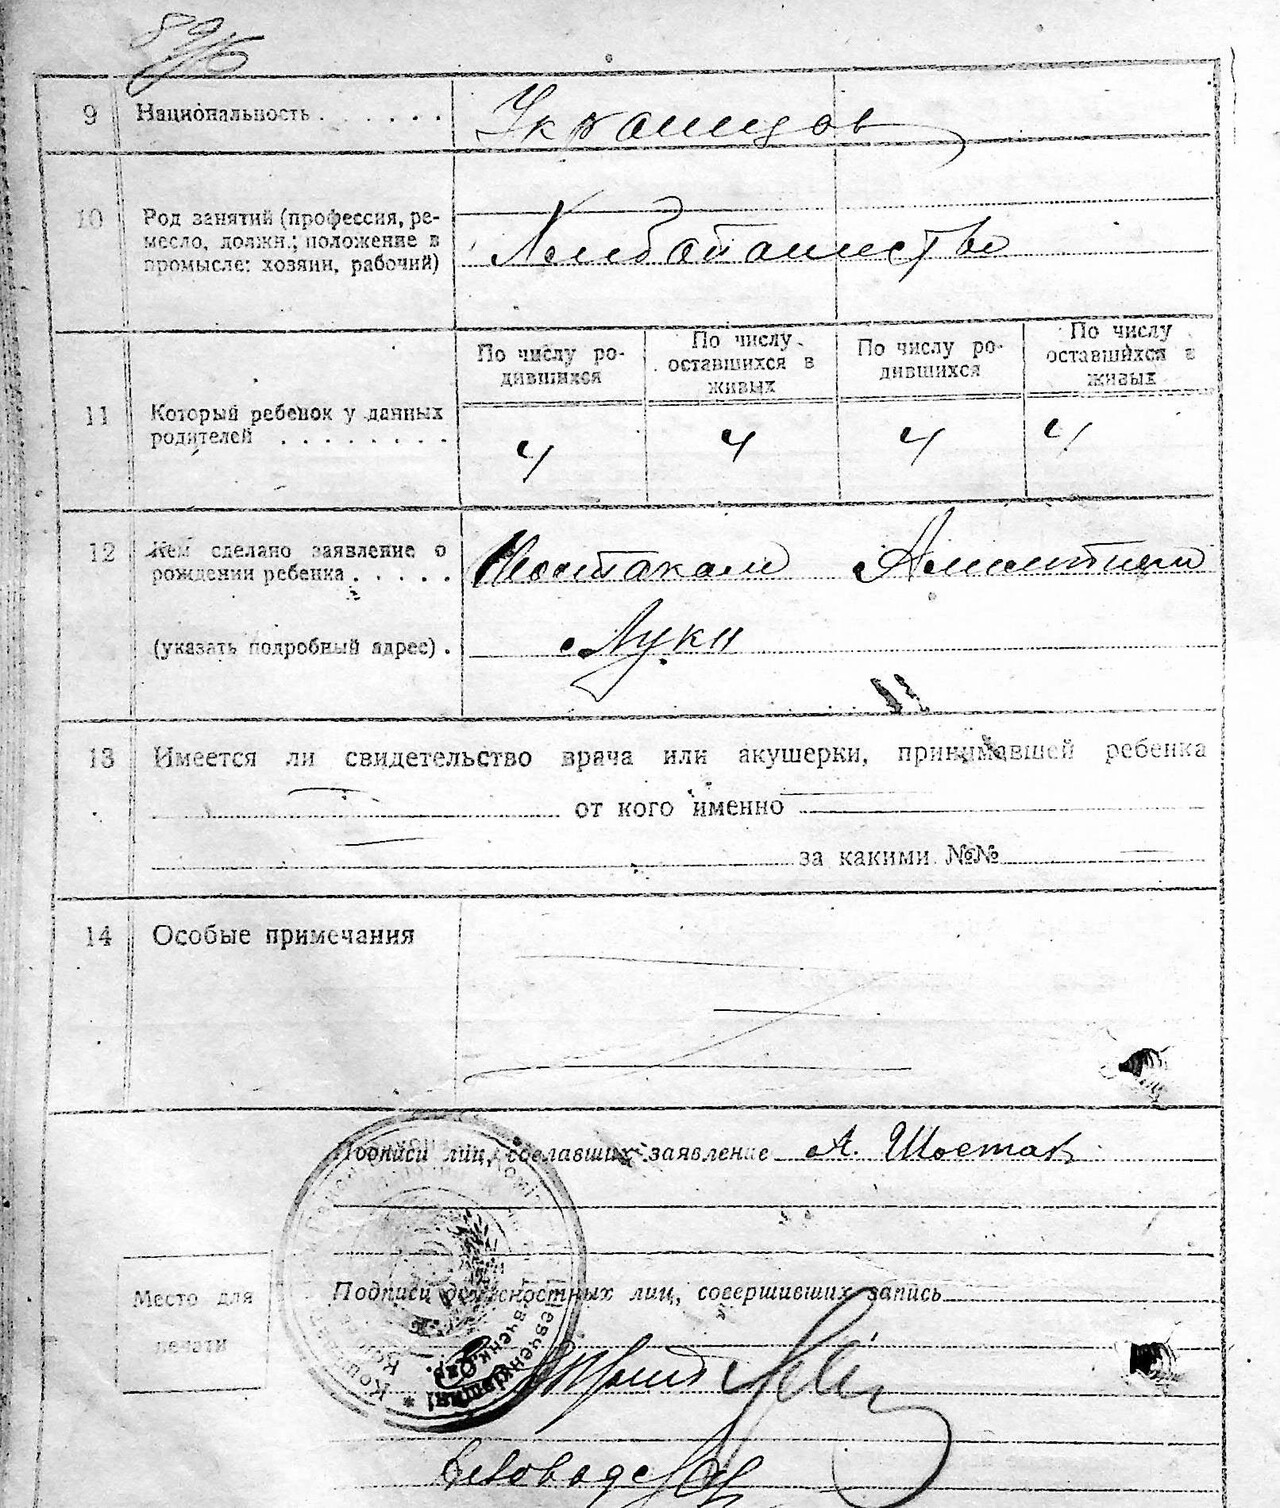 9 Национальность . . . . . . Украинцов
10 Род занятий (профессия, ре-
месло, должн.; положение в
промысле: хозяин, рабочий)
Хлебопашество
По числу ро-
дившихся
По числу
оставшихся в
живых
По числу ро-
дившихся
По числу
оставшихся в
живых
11 Который ребенок у данных
родителей . . . . . . . .
4 4 4 4
12 Кем сделано заявление о
рождении ребенка . . . . .
Шостаком
(указать подробный адрес) .
Луки
13 Имеется ли свидетельство врача или акушерки, принимавшей ребенка
от кого именно
за какими №№
14 Особые примечания
Подписи лиц, сделавших заявление А. Шостак
Подписи должностных лиц, совершивших запись
Место для
печати